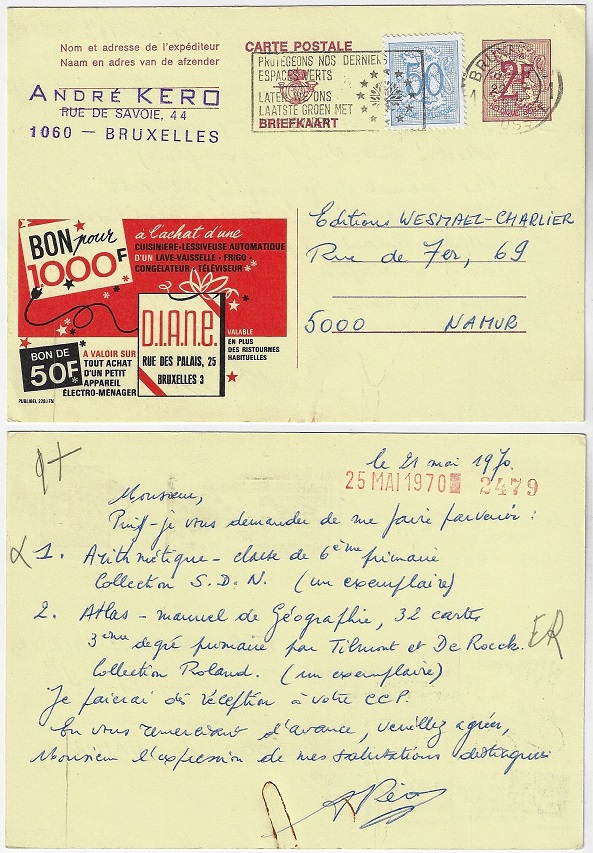 Nom et adresse de l'expéditeur
Naam en adres van de afzender
CARTE POSTALE
PROTEGEONS NOS DERNIERS
ESPACES VERTS
LATEN WE ONS
LAATSTE GROEN MET
BRIEFKAART
50
2F
ANDRÉ KERO
RUE DE SAVOIE, 44
1060 — BRUXELLES
BON pour
1000F
à l'achat d'une
CUISINIÈRE•LESSIVEUSE AUTOMATIQUE
D'UN LAVE-VAISSELLE • FRIGO •
CONGELATEUR • TÉLÉVISEUR
D.I.A.N.E.
RUE DES PALAIS, 25
BRUXELLES 3
VALABLE
EN PLUS
DES RISTOURNES
HABITUELLES
BON DE
50F
A VALOIR SUR
TOUT ACHAT
D'UN PETIT
APPAREIL
ÉLECTRO-MÉNAGER
Editions WESMAEL-CHARLIER
Rue de Fer, 69
5000 NAMUR
le 21 mai 1970.
25 MAI 1970 2479
Monsieur,
Puis-je vous demander de me faire parvenir :
1. Arithmétique - classe de 6ème primaire
Collection S.D.N. (un exemplaire)
2. Atlas - manuel de Géographie, 32 cartes
3ème degré primaire par Tilmont et De Roeck.
Collection Roland. (un exemplaire)
Je paierai dès réception à votre CCP.
En vous remerciant d'avance, veuillez agréer,
Monsieur l'expression de mes salutations distinguées
ER